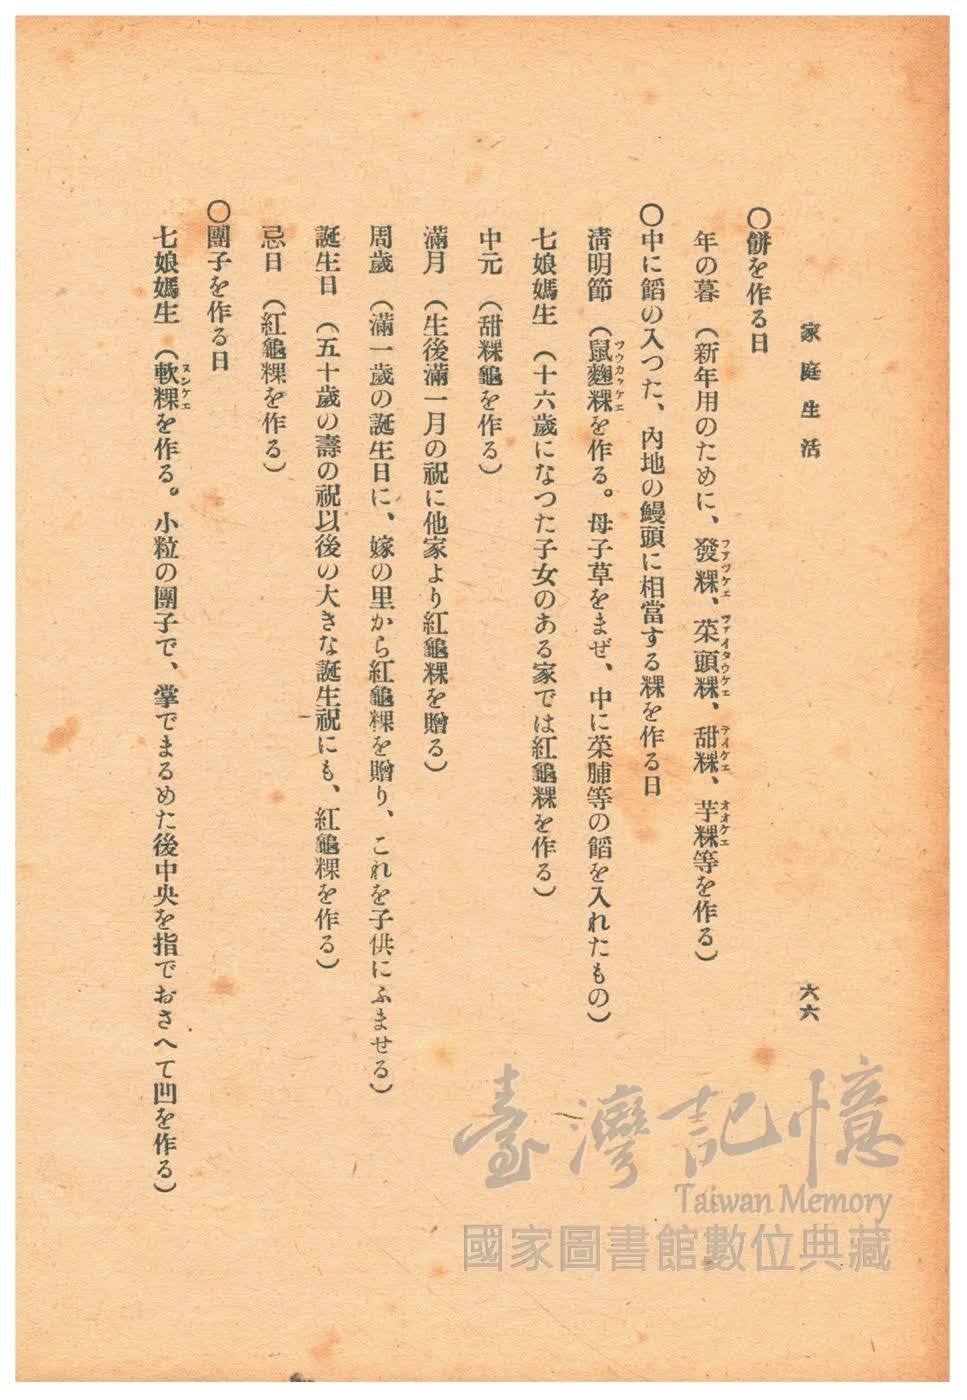 家庭生活
六六
〇餠を作る日
年の暮　（新年用のために、發粿、菜頭粿、甜粿、芋粿等を作る）
フアヅケエ　ツァイタウケエ　テイケエ　オオケエ
〇中に餡の入つた、內地の饅頭に相當する粿を作る日
淸明節　（鼠麴粿を作る。母子草をまぜ、中に菜脯等の餡を入れたもの）
ツウカッケエ
七娘媽生　（十六歲になつた子女のある家では紅龜粿を作る）
中元　（甜粿龜を作る）
滿月　（生後滿一月の祝に他家より紅龜粿を贈る）
周歲　（滿一歲の誕生日に、嫁の里から紅龜粿を贈り、これを子供にふませる）
誕生日　（五十歲の壽の祝以後の大きな誕生祝にも、紅龜粿を作る）
忌日　（紅龜粿を作る）
〇團子を作る日
七娘媽生　（軟粿を作る。小粒の團子で、掌でまるめた後中央を指でおさへて凹を作る）
ヌンケエ
臺灣記憶
Taiwan Memory
國家圖書館數位典藏